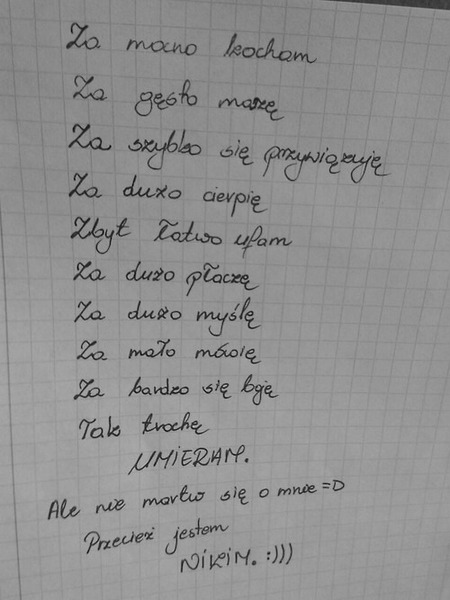 Za mocno kocham
Za gęsto marzę
Za szybko się przywiązuję
Za dużo cierpię
Zbyt łatwo ufam
Za dużo płaczę
Za dużo myślę
Za mało mówię
Za bardzo się boję
Tak trochę
UMIERAM.
Ale nie martw się o mnie =D
Przecież jestem
NIKIM. :)))